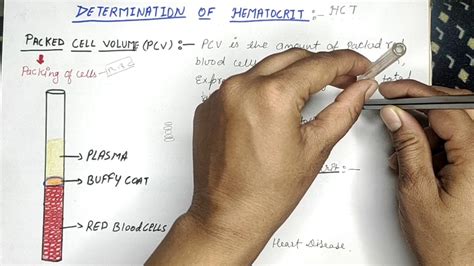 DETERMINATION OF HEMATOCRIT:- HCT
PACKED CELL VOLUME (PCV):- PCV is the amount of Packed red
Packing of cells
blood cell
Expre
PLASMA
BUFFY COAT
RED Blood CELLS
Heart Disease.